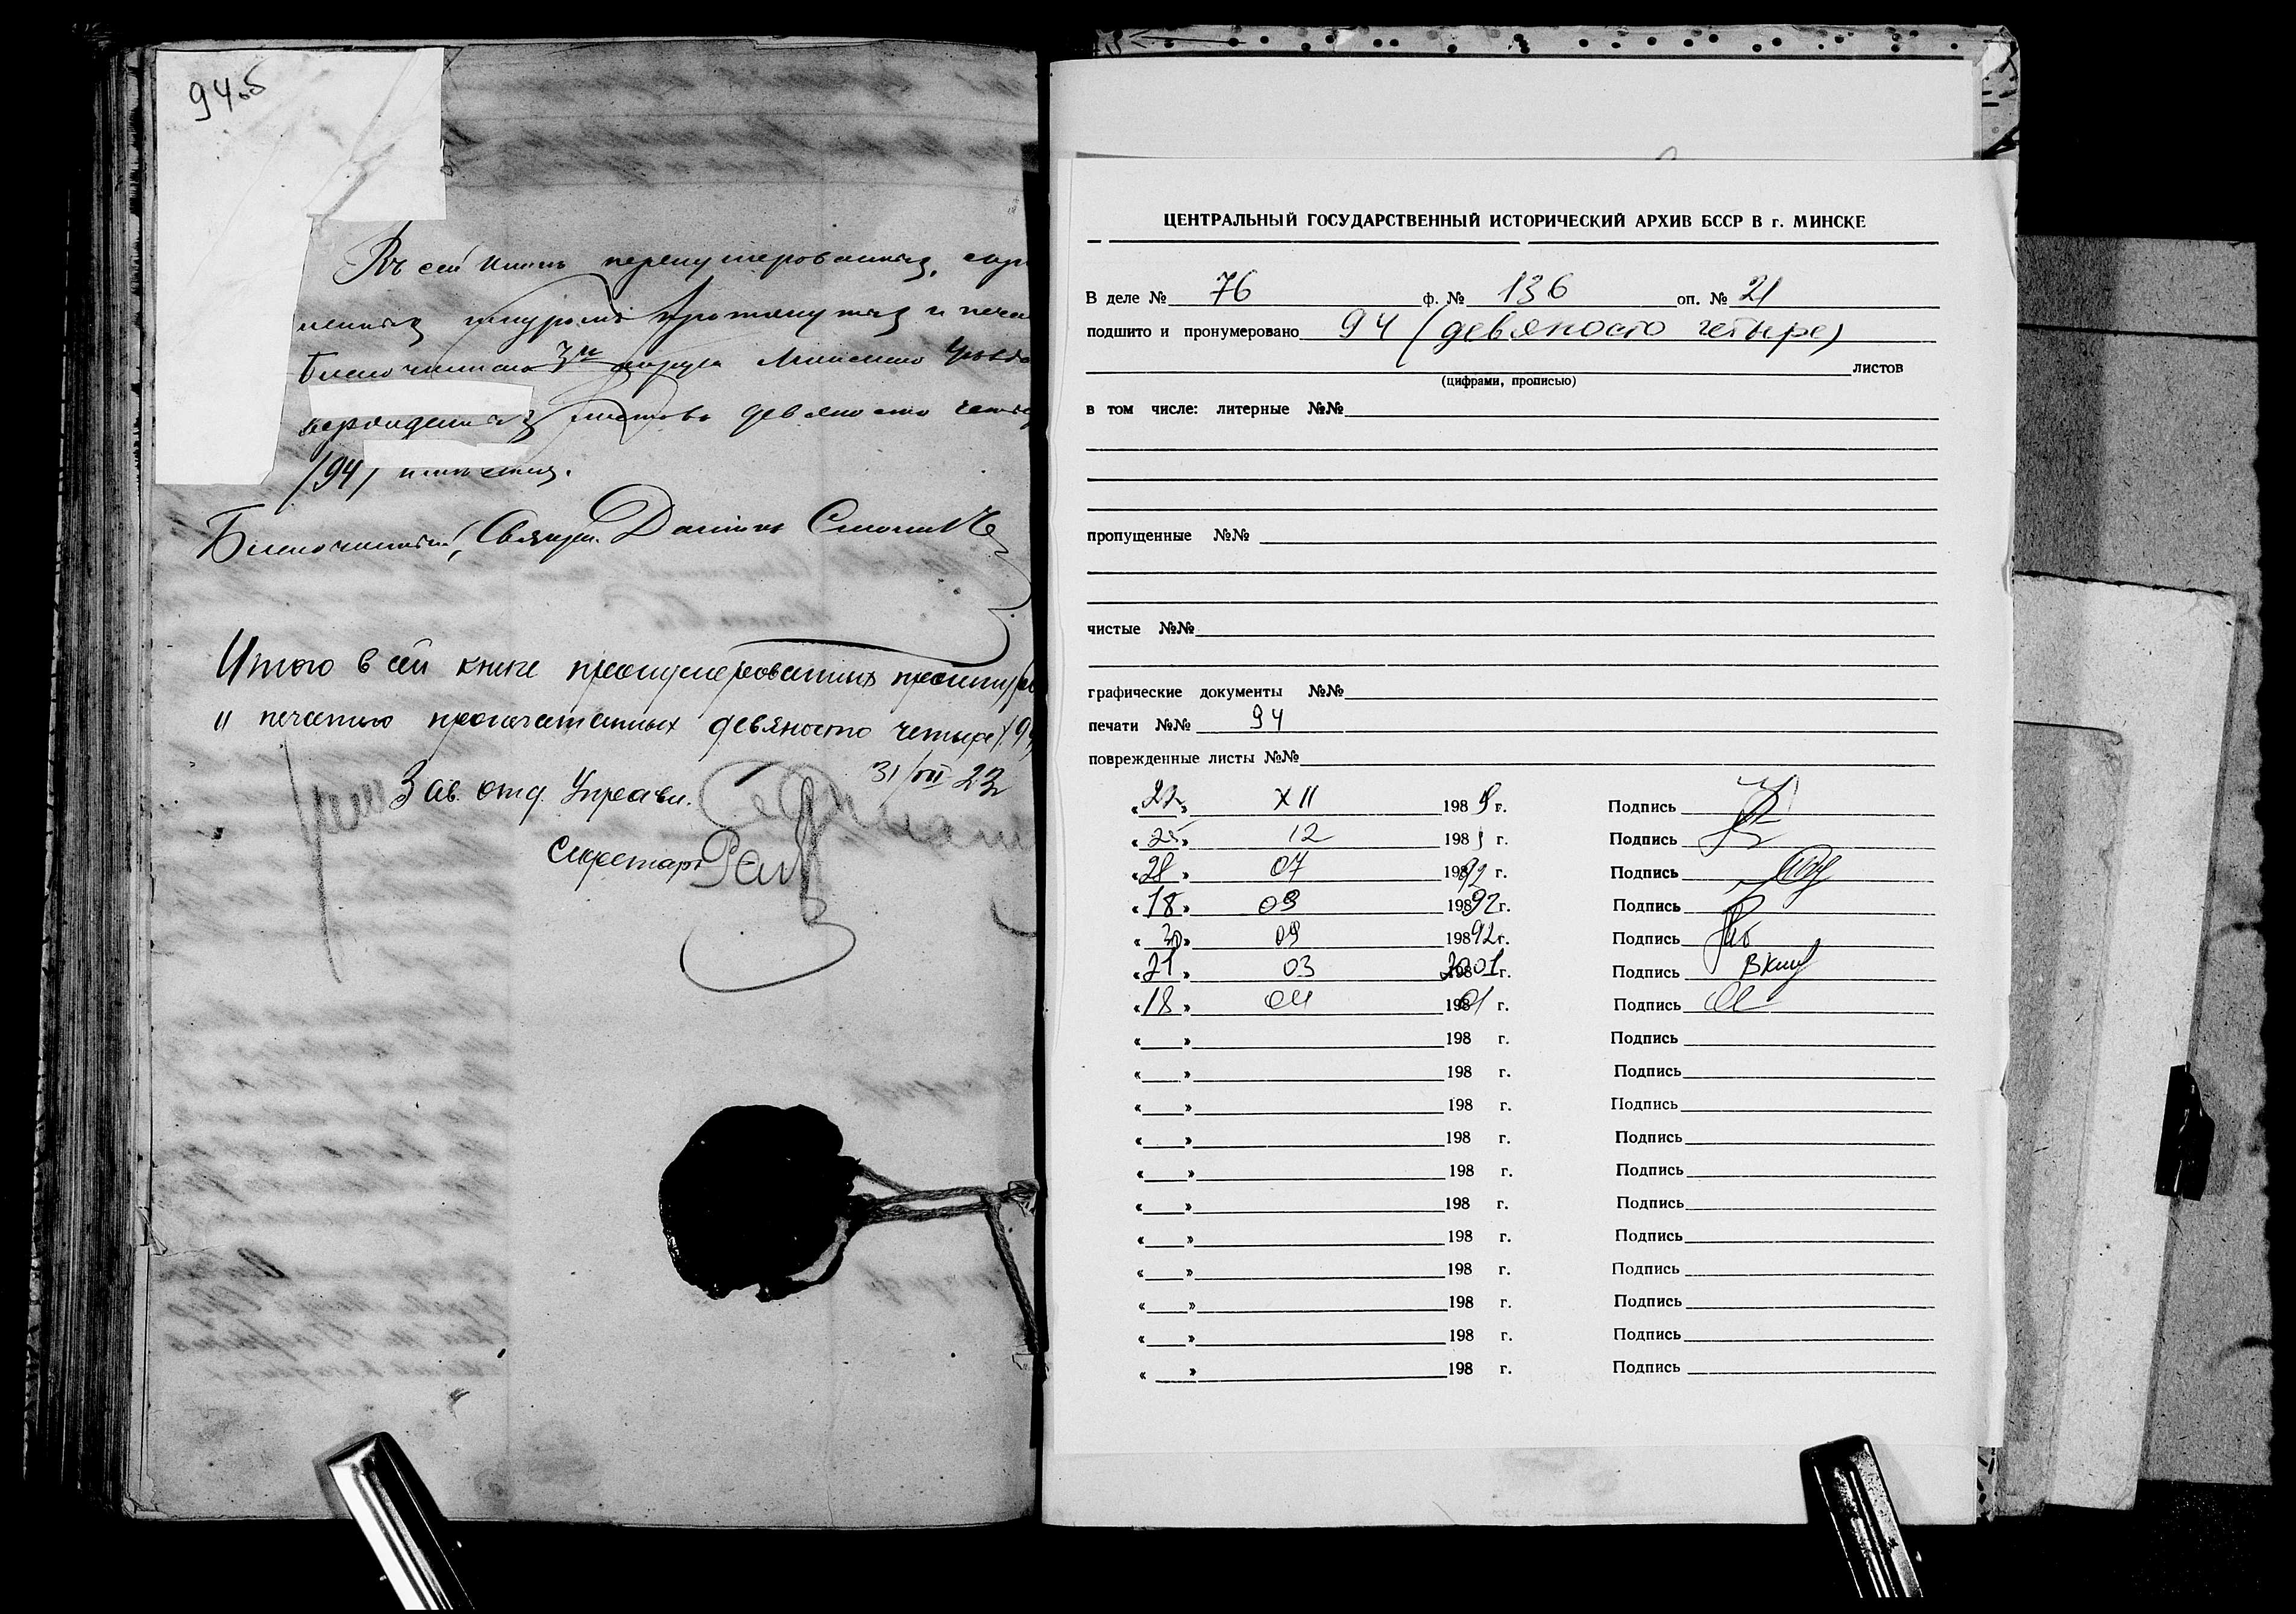 94об
Въ сей книгѣ перенумерованныхъ,
шнуромъ протянутыхъ и
Благочиннаго 3го округа Минскаго Уѣзда
листовъ девяносто
/94/
Благочинный, Священ.
Итого в сей книге пронумерованных
и печатью пропечатанных девяносто четыре /94
31/VII 23
Зав. отд. Управл.
Секретарь
ЦЕНТРАЛЬНЫЙ ГОСУДАРСТВЕННЫЙ ИСТОРИЧЕСКИЙ АРХИВ БССР В г. МИНСКЕ
В деле № 76 ф. № 136 оп. № 21
подшито и пронумеровано 94 (девяносто четыре)
листов
(цифрами, прописью)
в том числе: литерные №№
пропущенные №№
чистые №№
графические документы №№
печати №№ 94
поврежденные листы №№
«22» XII 198 г. Подпись
«25» 12 198 г. Подпись
«28» 07 19892 г. Подпись
«18» 09 19892 г. Подпись
«30» 09 19892 г. Подпись
«21» 03 2001 г. Подпись
«18» 04 19801 г. Подпись
« » 198 г. Подпись
« » 198 г. Подпись
« » 198 г. Подпись
« » 198 г. Подпись
« » 198 г. Подпись
« » 198 г. Подпись
« » 198 г. Подпись
« » 198 г. Подпись
« » 198 г. Подпись
« » 198 г. Подпись
« » 198 г. Подпись